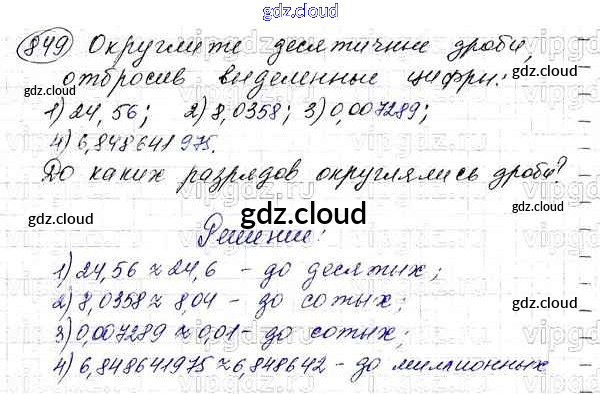 gdz.cloud
849 Округлите десятичные дроби,
отбросив выделенные цифры:
gdz.cloud gdz.cloud
1) 24,56; 2) 8,0358; 3) 0,007289;
4) 6,848641975.
До каких разрядов округлялись дроби?
gdz.cloud gdz.cloud gdz.cloud
Решение:
1) 24,56 ≈ 24,6 - до десятых;
2) 8,0358 ≈ 8,04 - до сотых;
gdz.cloud gdz.cloud
3) 0,007289 ≈ 0,01 - до сотых;
4) 6,848641975 ≈ 6,848642 - до миллионных
gdz.cloud